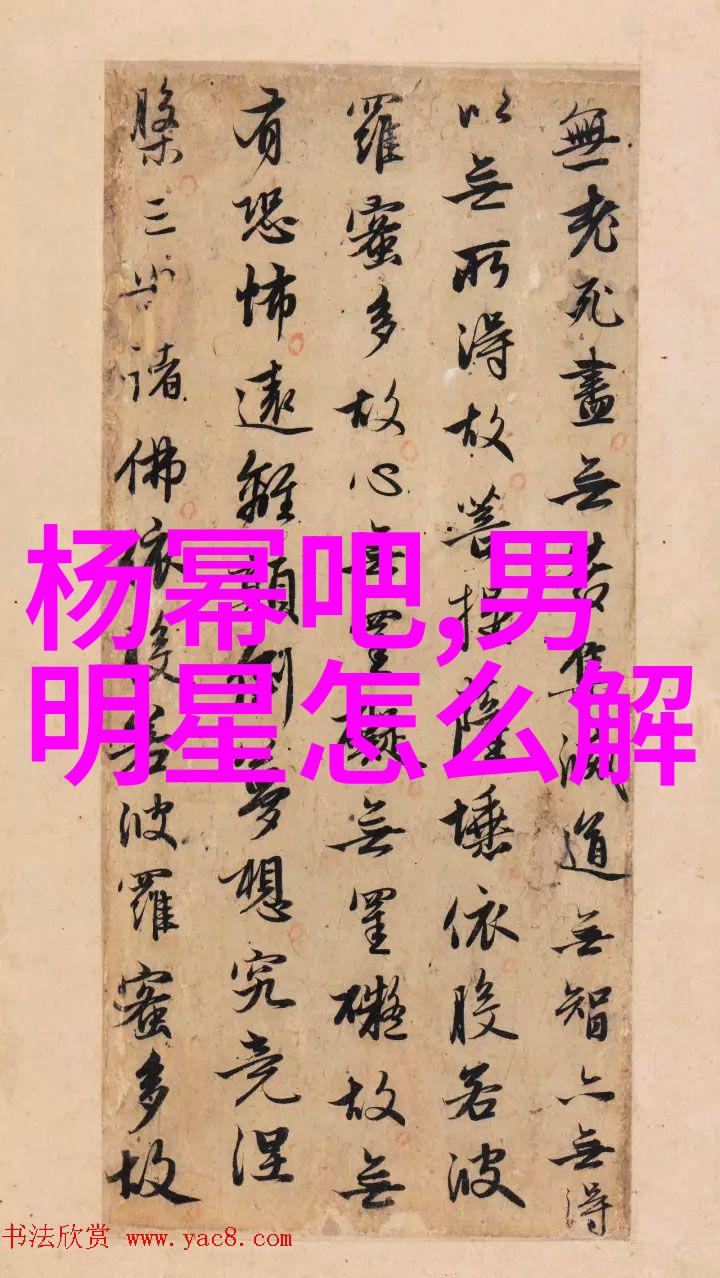 無老死盡无苦集滅道无智亦无得
以无所得故菩提薩埵依般若波
羅蜜多故心无罣礙无罣礙故无
有恐怖遠離顛倒夢想究竟涅
槃三世諸佛依般若波羅蜜多故
杨幂吧,男
明星怎么解
书法欣赏 www.yac8.com